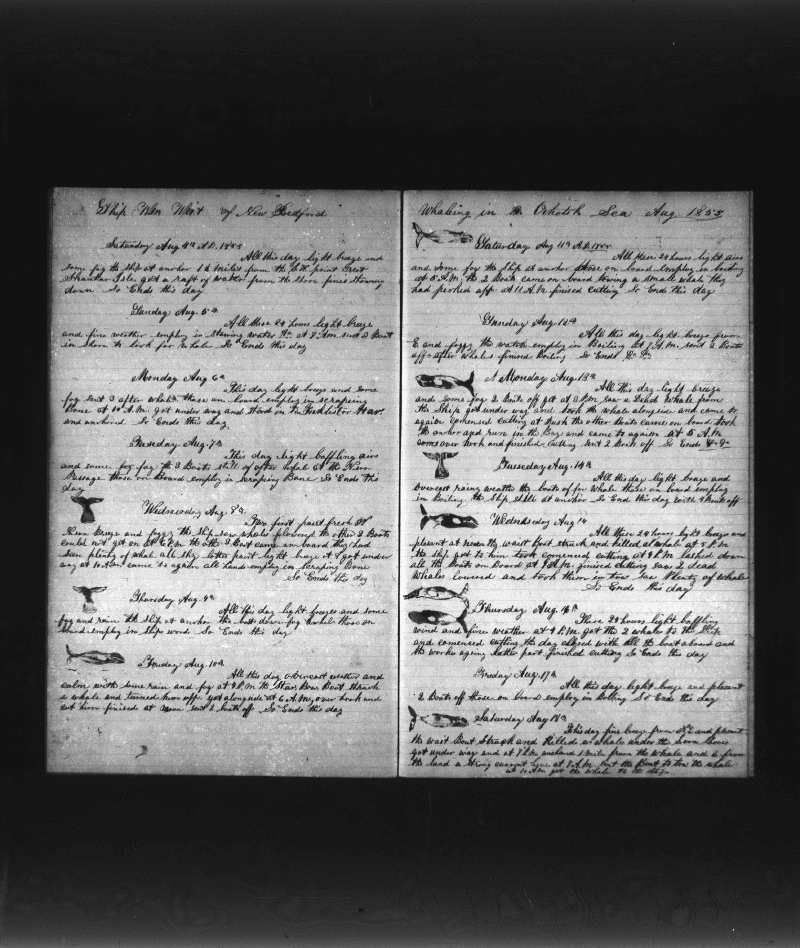 Ship Wm Wirt of New Bedford
Saturday Aug 4th A.D. 1855
All this day light breeze and
some fog the ship at anchor 1½ miles from the S.W. point Great
Shantar Isle got a raft of water from the shore finised stowing
down So Ends this day
Sunday Aug 5th
All these 24 hours light breeze
and fine weather employ in stowing water &c. at 7 A.m. sent 2 Boat
in shore to look for whale So Ends this day
Monday Aug 6th
This day light breeze and some
fog sent 3 after whales those on board employ in scrapeing
Bone at 10 A.M. got under way and stood in Har.
and anchored So Ends this day
Tuesday Aug. 7th
This day light baffling airs
and some fog the 3 Boats still of after whale at the
Passage those on Board employ in scraping Bone So Ends this
day
Wednesday Aug. 8th
Two first part fresh
breeze and foggy the ship saw whales plowered the other 2 Boats
could not get on at 6 P.M. the other 2 Boat came on board they had
seen plenty of whale all ship latter part light breze at 9 got under
way at 10 A.m came to again all hands employ in scraping Bone
So Ends this day
Thursday Aug. 9th
All this day light breezes and some
fog and rain the ship at anchor the boat down for whale those on
board employ in ships word So Ends this day
Friday Aug. 10th
All this day overcast weather and
calm with some rain and fog at 4 P.M. the Star. Boat Struck
a whale and turned him off got alongside at 6 A.M. over took and
cut him finised at noon sent 2 boats off So Ends this day
Whaleing in the Ochotsk Sea Aug 1855
Saturday Aug 11th A.D. 1855
All these 24 hours light airs
and some fog the ship at anchor those on board employ in boiling
at 5 A.M. the 2 Boats came on board towing a small whale they
had picked off at 11 A.M finised cutting So Ends this day
Sunday Aug 12th
All this day light breeze from
E and foggy the watch employ in Boiling at 7 A.M. sent 2 Boats
off after whales finised Boiling So Ends &c &c
Monday Aug. 13th
All this day light breeze
and some fog 2 Boats off got at 2 P.M. saw a Dead Whale from
the Ship got under way and took the whale alongside and came to
again comenced cutting at Dusk the other boats came on board took
the anchor and run in the Bay and came to again at 5 A.M
turns over took and finished cutting sent 2 Boat off So Ends &c
Tuesday Aug. 14th
All this day light breeze and
overcast rainy weather the boats of for Whale those on board employ
in Boiling the Ship still at anchor So End this day with 4 Boats off
Wednesday Aug 15
All these 24 hours light breeze and
plesent at noon the waist boat struck and killed a whale at 5 P.M.
the ship got to him took comenced cutting at 9 P.M. lashed down
all the Boats on Board at 9 A.M. finised cutting saw 2 dead
Whales lowered and took them in tow saw Plenty of whale
So Ends this day
Thursday Aug. 16th
These 24 hours light baffling
wind and fine weather at 4 P.M. got the 2 whales to the ship
and comenced cutting the day closed with all the boats aboard and
the works ageing latter part finished cutting So Ends this day
Friday Aug. 17th
All this day light breeze and plesent
2 Boats off those on board employ in Boiling So Ends this day
Saturday Aug 18th
This day fine breeze from and plesent
the waist Boat Struck and Killed a whale under the shore
got under way and at 7 P.M. anchored 1 mile from the whale and ½ from
the land a strong current here at 7 A.M. sent the Boat to tow the whale
at 10 A.m got the whale to the ship